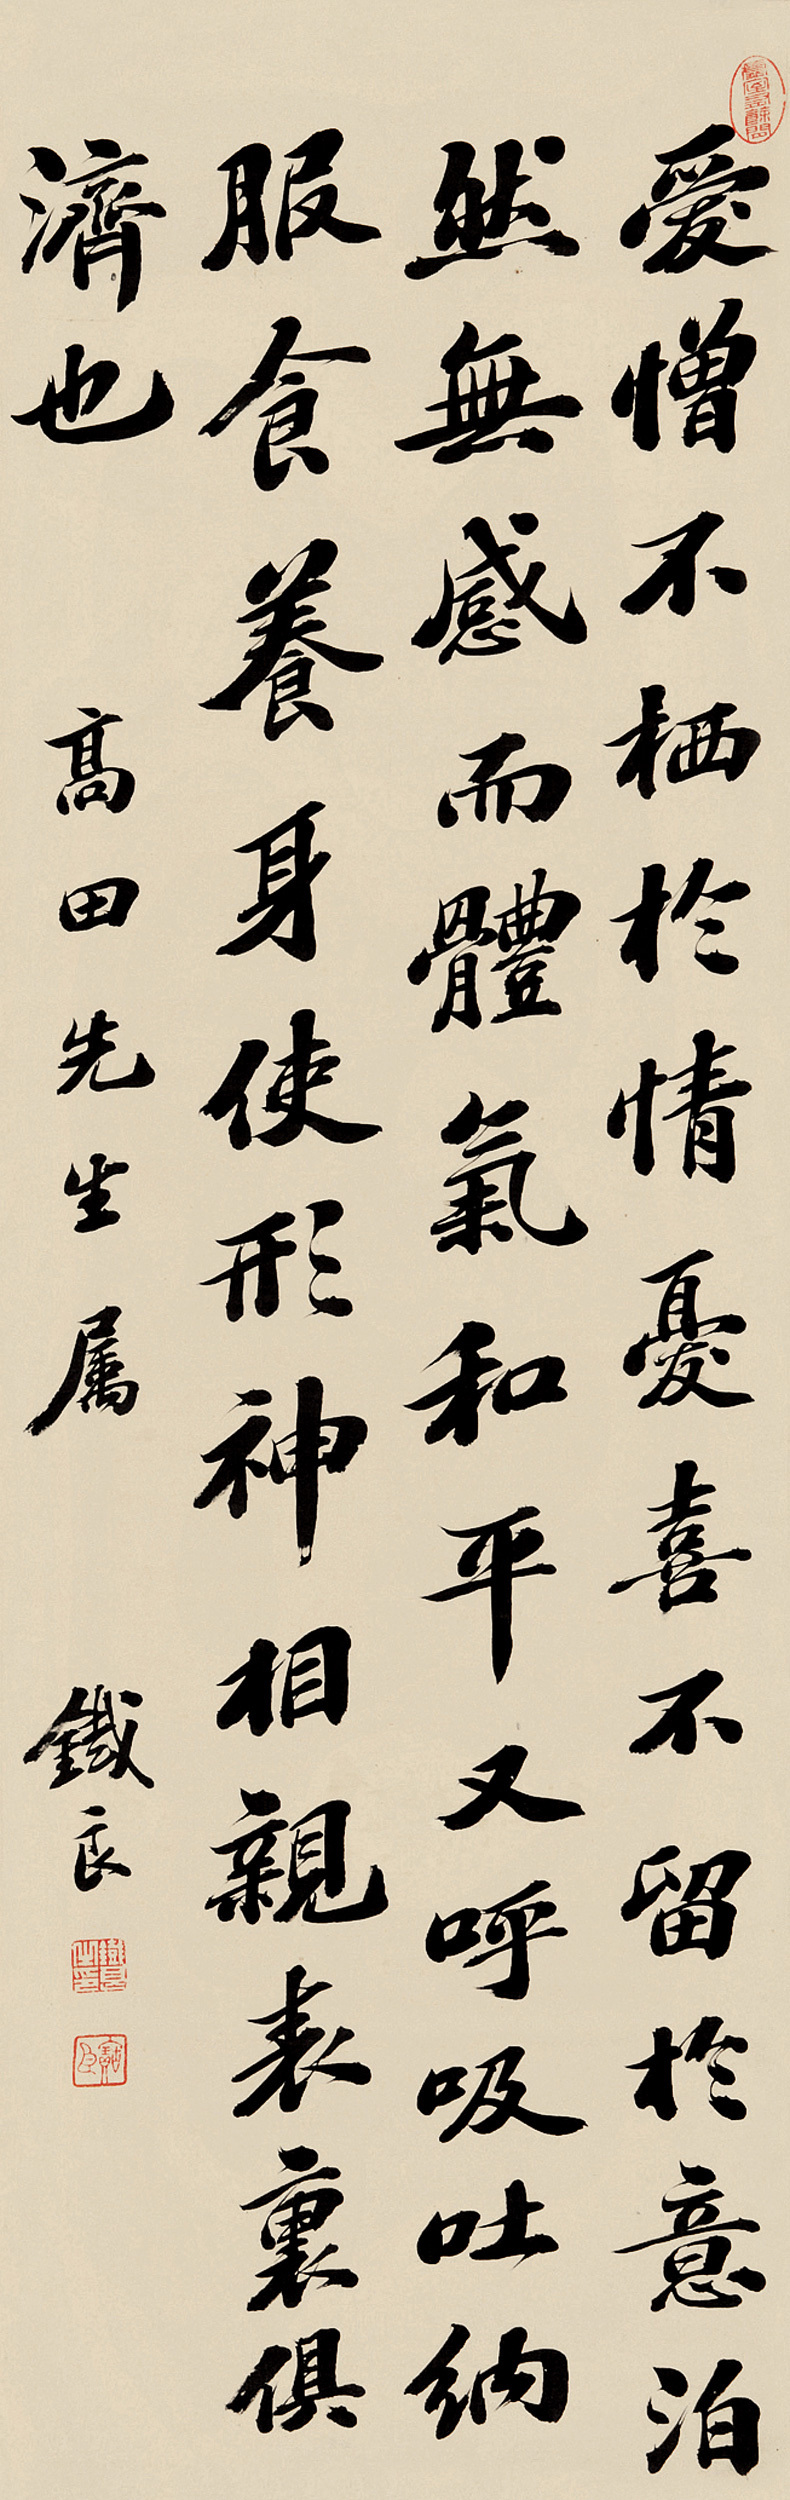 愛憎不栖於情憂喜不留於意泊
然無感而體氣和平又呼吸吐納
服食養身使形神相親表裏俱
濟也
高田先生属
鐵良